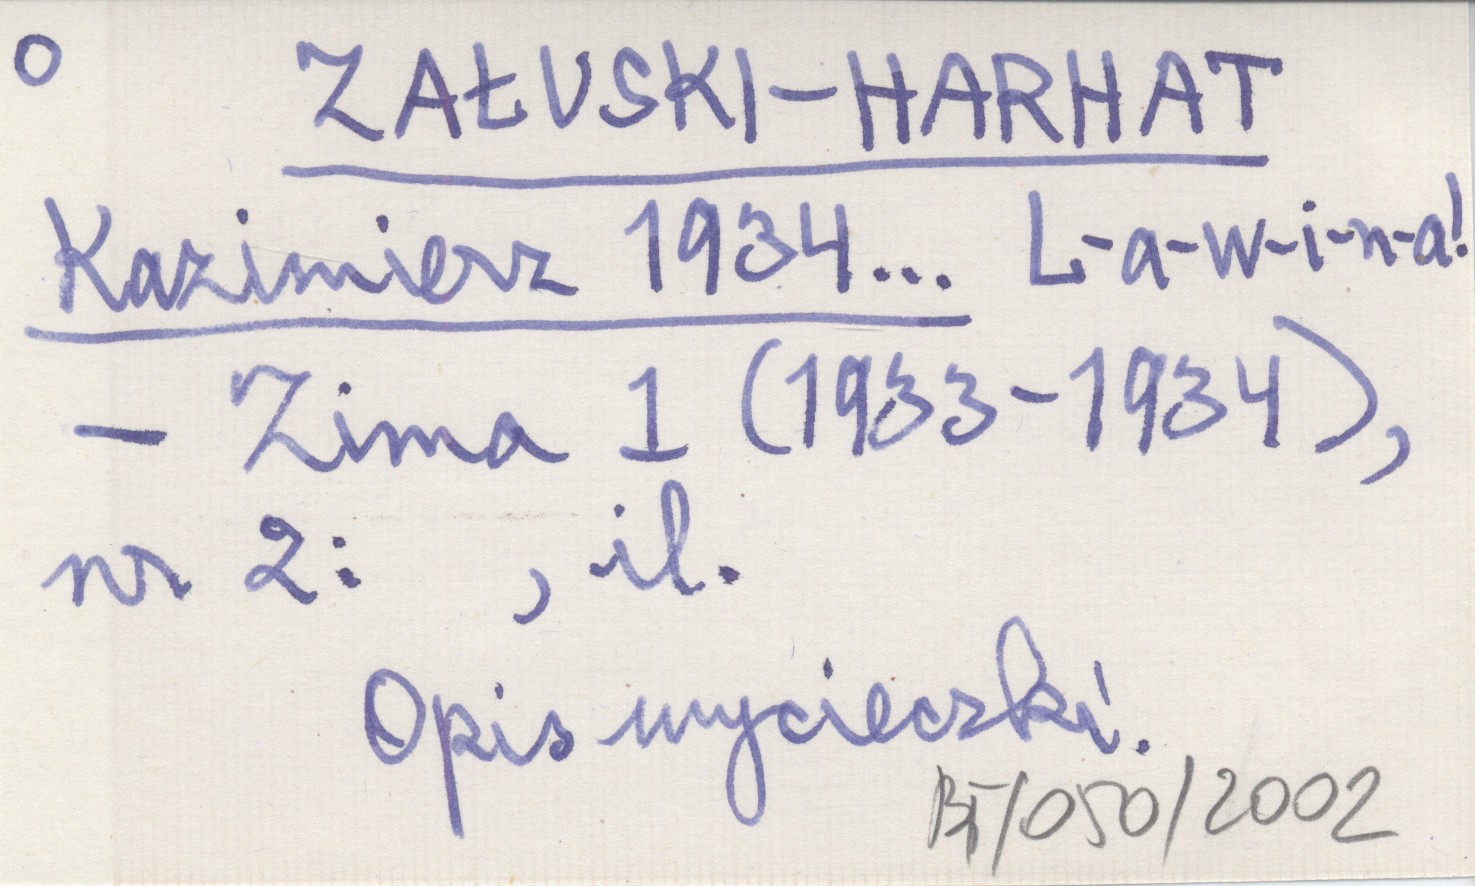 O
ZAŁUSKI-HARHAT
Kazimierz 1934... L-a-w-i-n-a!
- Zima 1 (1933-1934),
nr 2: , il.
Opis wycieczki.
BT/050/2002